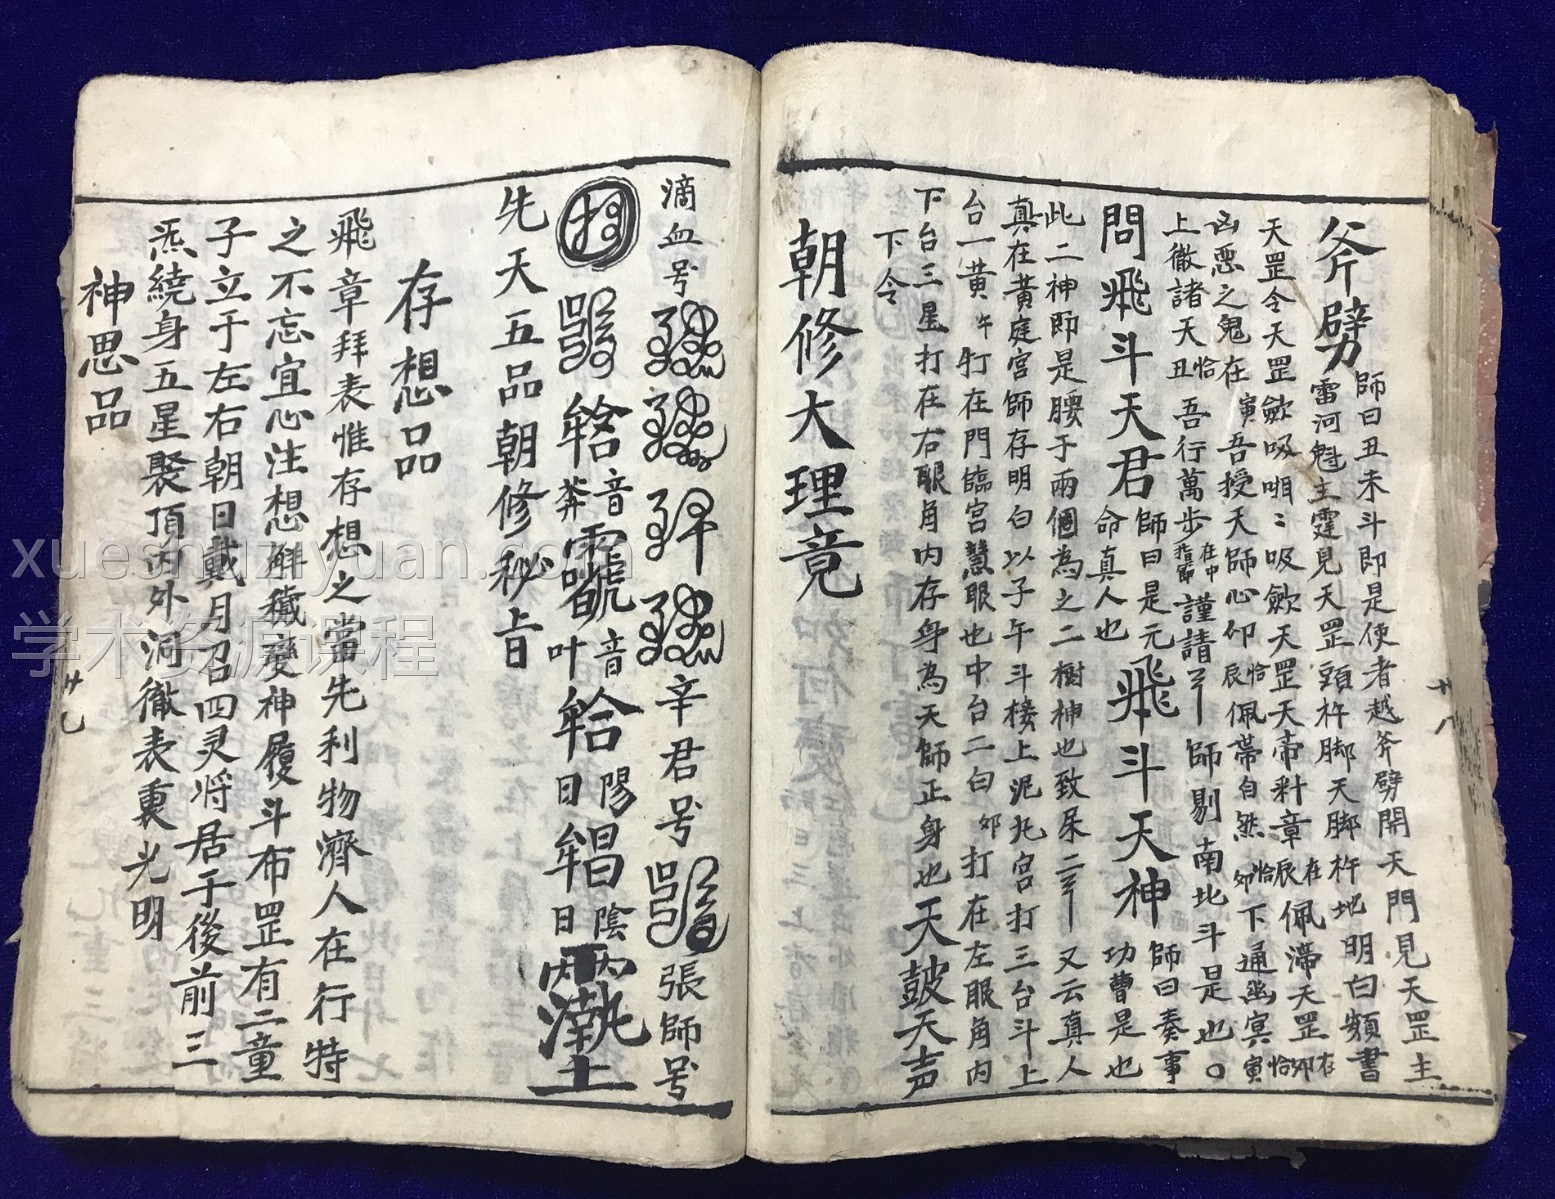 斧劈
師曰丑未斗即是使者越斧劈開天門見天罡主
雷河魁主霆見天罡頭杵脚天脚杵地明白頻書
天罡令天罡歛吸呬〻吸歛天罡天帝料章辰恰在佩滯天罡卯恰在
凶惡之鬼在寅吾授天師心印辰恰佩帶自然卯恰下通幽冥寅
上徹諸天丑恰吾行萬步指節在中謹請 師剔南北斗是也
問飛斗天君師曰是元命真人也飛斗天神師曰奏事功曹是也
此二神即是腰于兩個為之二樹神也致杀二 又云真人
真在黃庭宮師存明白以子午斗棲上泥丸宮打三台斗上
台一黃午打在門臨宮慧眼也中台二白卯打在左眼角内
下台三星打在右眼角内存身為天師正身也天皷天声
下令
朝修大理竟
廿八
滴血号 辛君号 張師号
音 音 叶 陽 日 陰 日
先天五品朝修秘旨
存想品
飛章拜表惟存想之當先利物濟人在行特
之不忘宜心注想解穢變神履斗布罡有二童
子立于左右朝日戴月召四灵将居于後前三
炁繞身五星聚頂内外洞徹表裏光明
神思品
廿九
xueshuziyuan.com
学术资源课程